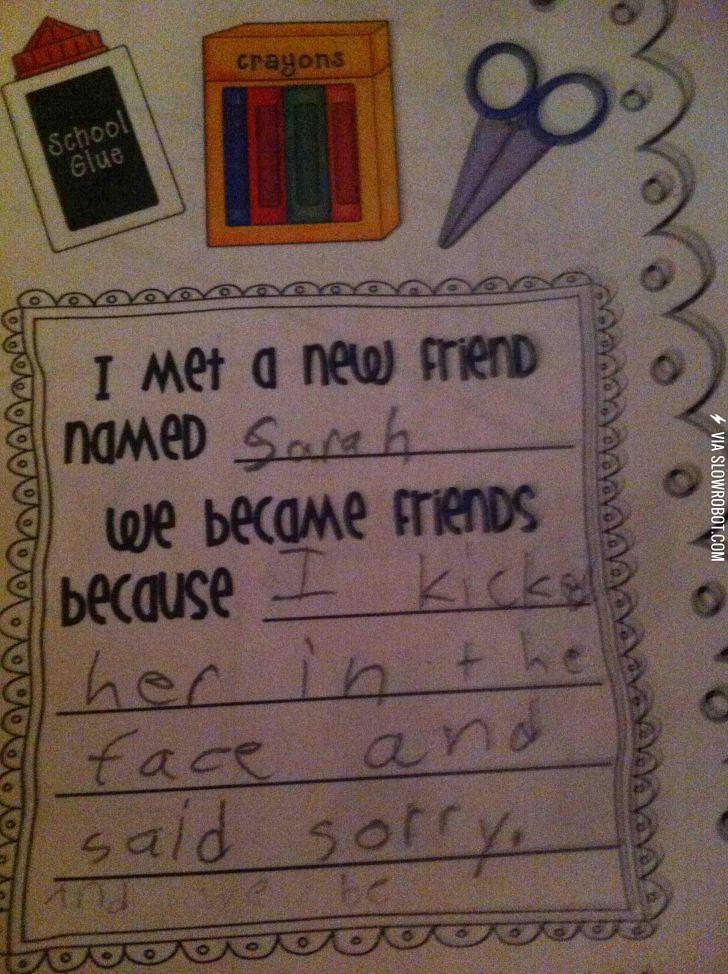 School
Glue
crayons
I met a new friend
named Sarah
we became friends
because I kicked
her in the
face and
said sorry.
And we be
VIA SLOWROBOT.COM